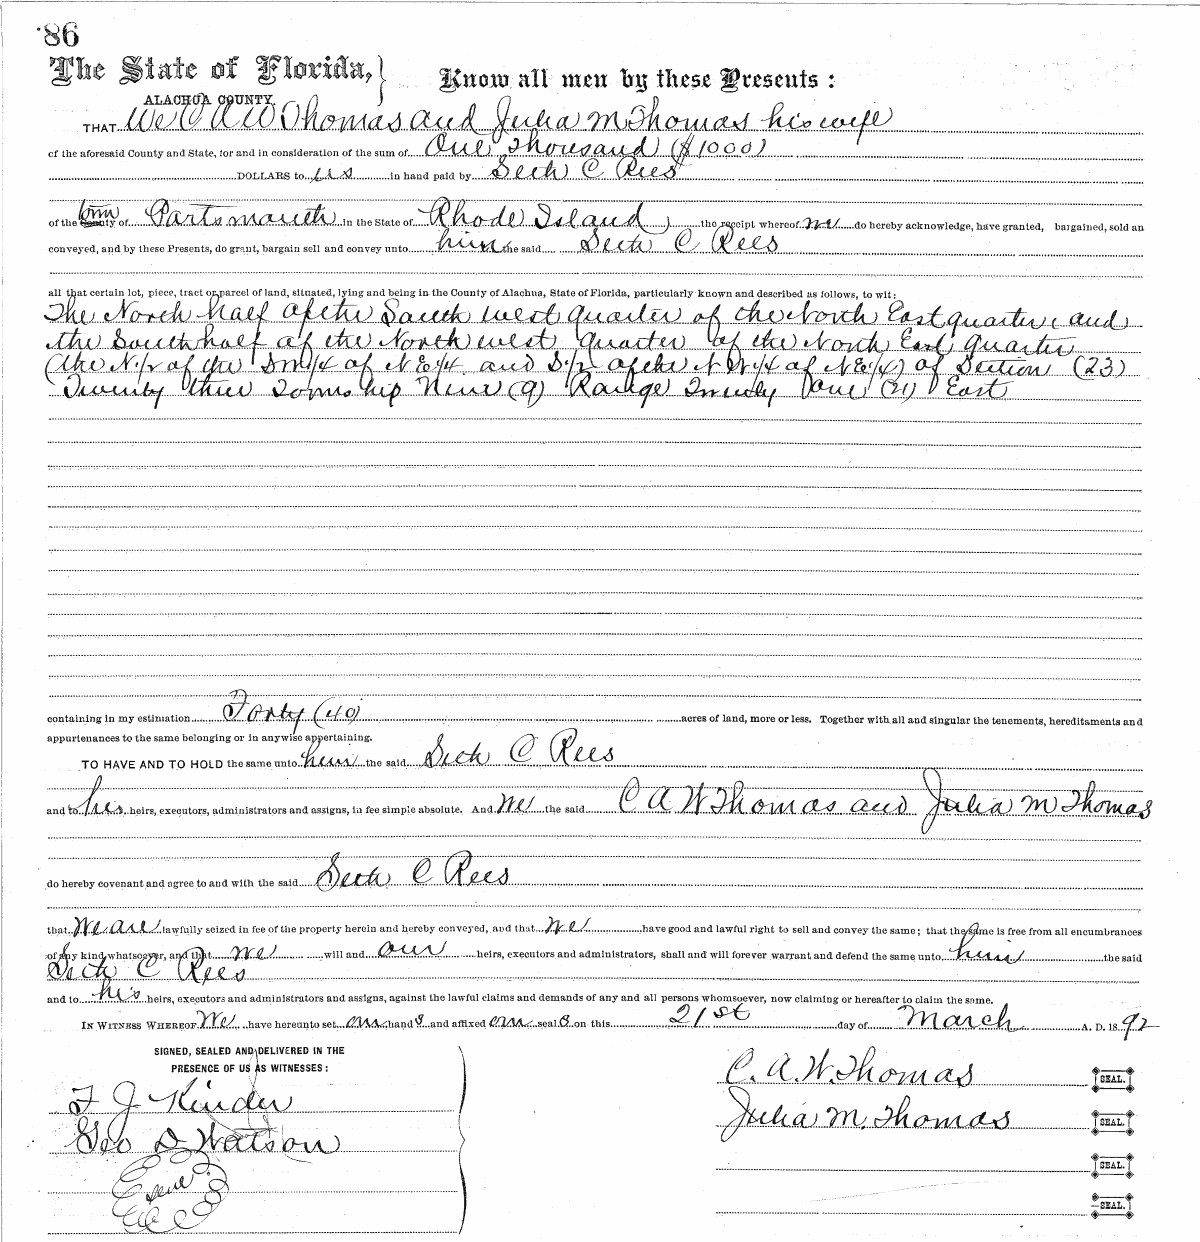 86
The State of Florida,
Know all men by these Presents :
ALACHUA COUNTY.
THAT We C A W Thomas and Julia M Thomas his wife
of the aforesaid County and State, for and in consideration of the sum of One Thousand ($1000)
DOLLARS to us in hand paid by Seth C Rees
of the town County of Partsmouth in the State of Rhode Island, the receipt whereof we do hereby acknowledge, have granted, bargained, sold an
conveyed, and by these Presents, do grant, bargain sell and convey unto him the said Seth C Rees
all that certain lot, piece, tract or parcel of land, situated, lying and being in the County of Alachua, State of Florida, particularly known and described as follows, to wit:
The North half of the South west quarter of the North East quarter, and
the South half of the North west quarter of the North East quarter
(the N ½ of the SW ¼ of N E ¼ and S ½ of the N W ¼ of N E ¼) of Section (23)
Twenty three Township Nine (9) Range Twenty One (21) East
containing in my estimation Forty (40) acres of land, more or less. Together with all and singular the tenements, hereditaments and
appurtenances to the same belonging or in anywise appertaining.
TO HAVE AND TO HOLD the same unto him the said Seth C Rees
and to his heirs, executors, administrators and assigns, in fee simple absolute. And We the said C A W Thomas and Julia M Thomas
do hereby covenant and agree to and with the said Seth C Rees
that We are lawfully seized in fee of the property herein and hereby conveyed, and that we have good and lawful right to sell and convey the same; that the same is free from all encumbrances
of any kind whatsoever, and that we will and our heirs, executors and administrators, shall and will forever warrant and defend the same unto him the said
Seth C Rees
and to his heirs, executors and administrators and assigns, against the lawful claims and demands of any and all persons whomsoever, now claiming or hereafter to claim the same.
IN WITNESS WHEREOF We have hereunto set our hand s and affixed our seal s on this 21st day of March A. D. 18 92
SIGNED, SEALED AND DELIVERED IN THE
PRESENCE OF US AS WITNESSES :
F J Kinder
Geo D Watson
C. A. W. Thomas SEAL.
Julia M. Thomas SEAL.
SEAL.
SEAL.